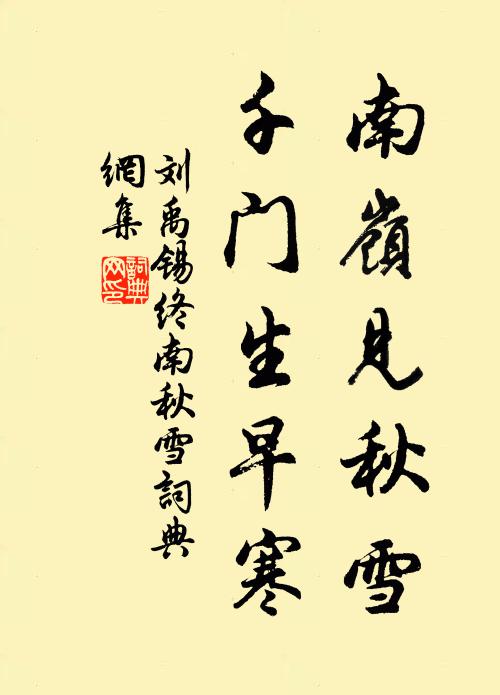 南嶺見秋雪
千门生早寒
刘禹锡终南秋雪詞典
網集
詞典網印